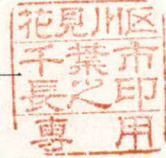 花見川区
千葉市
長之印
専用